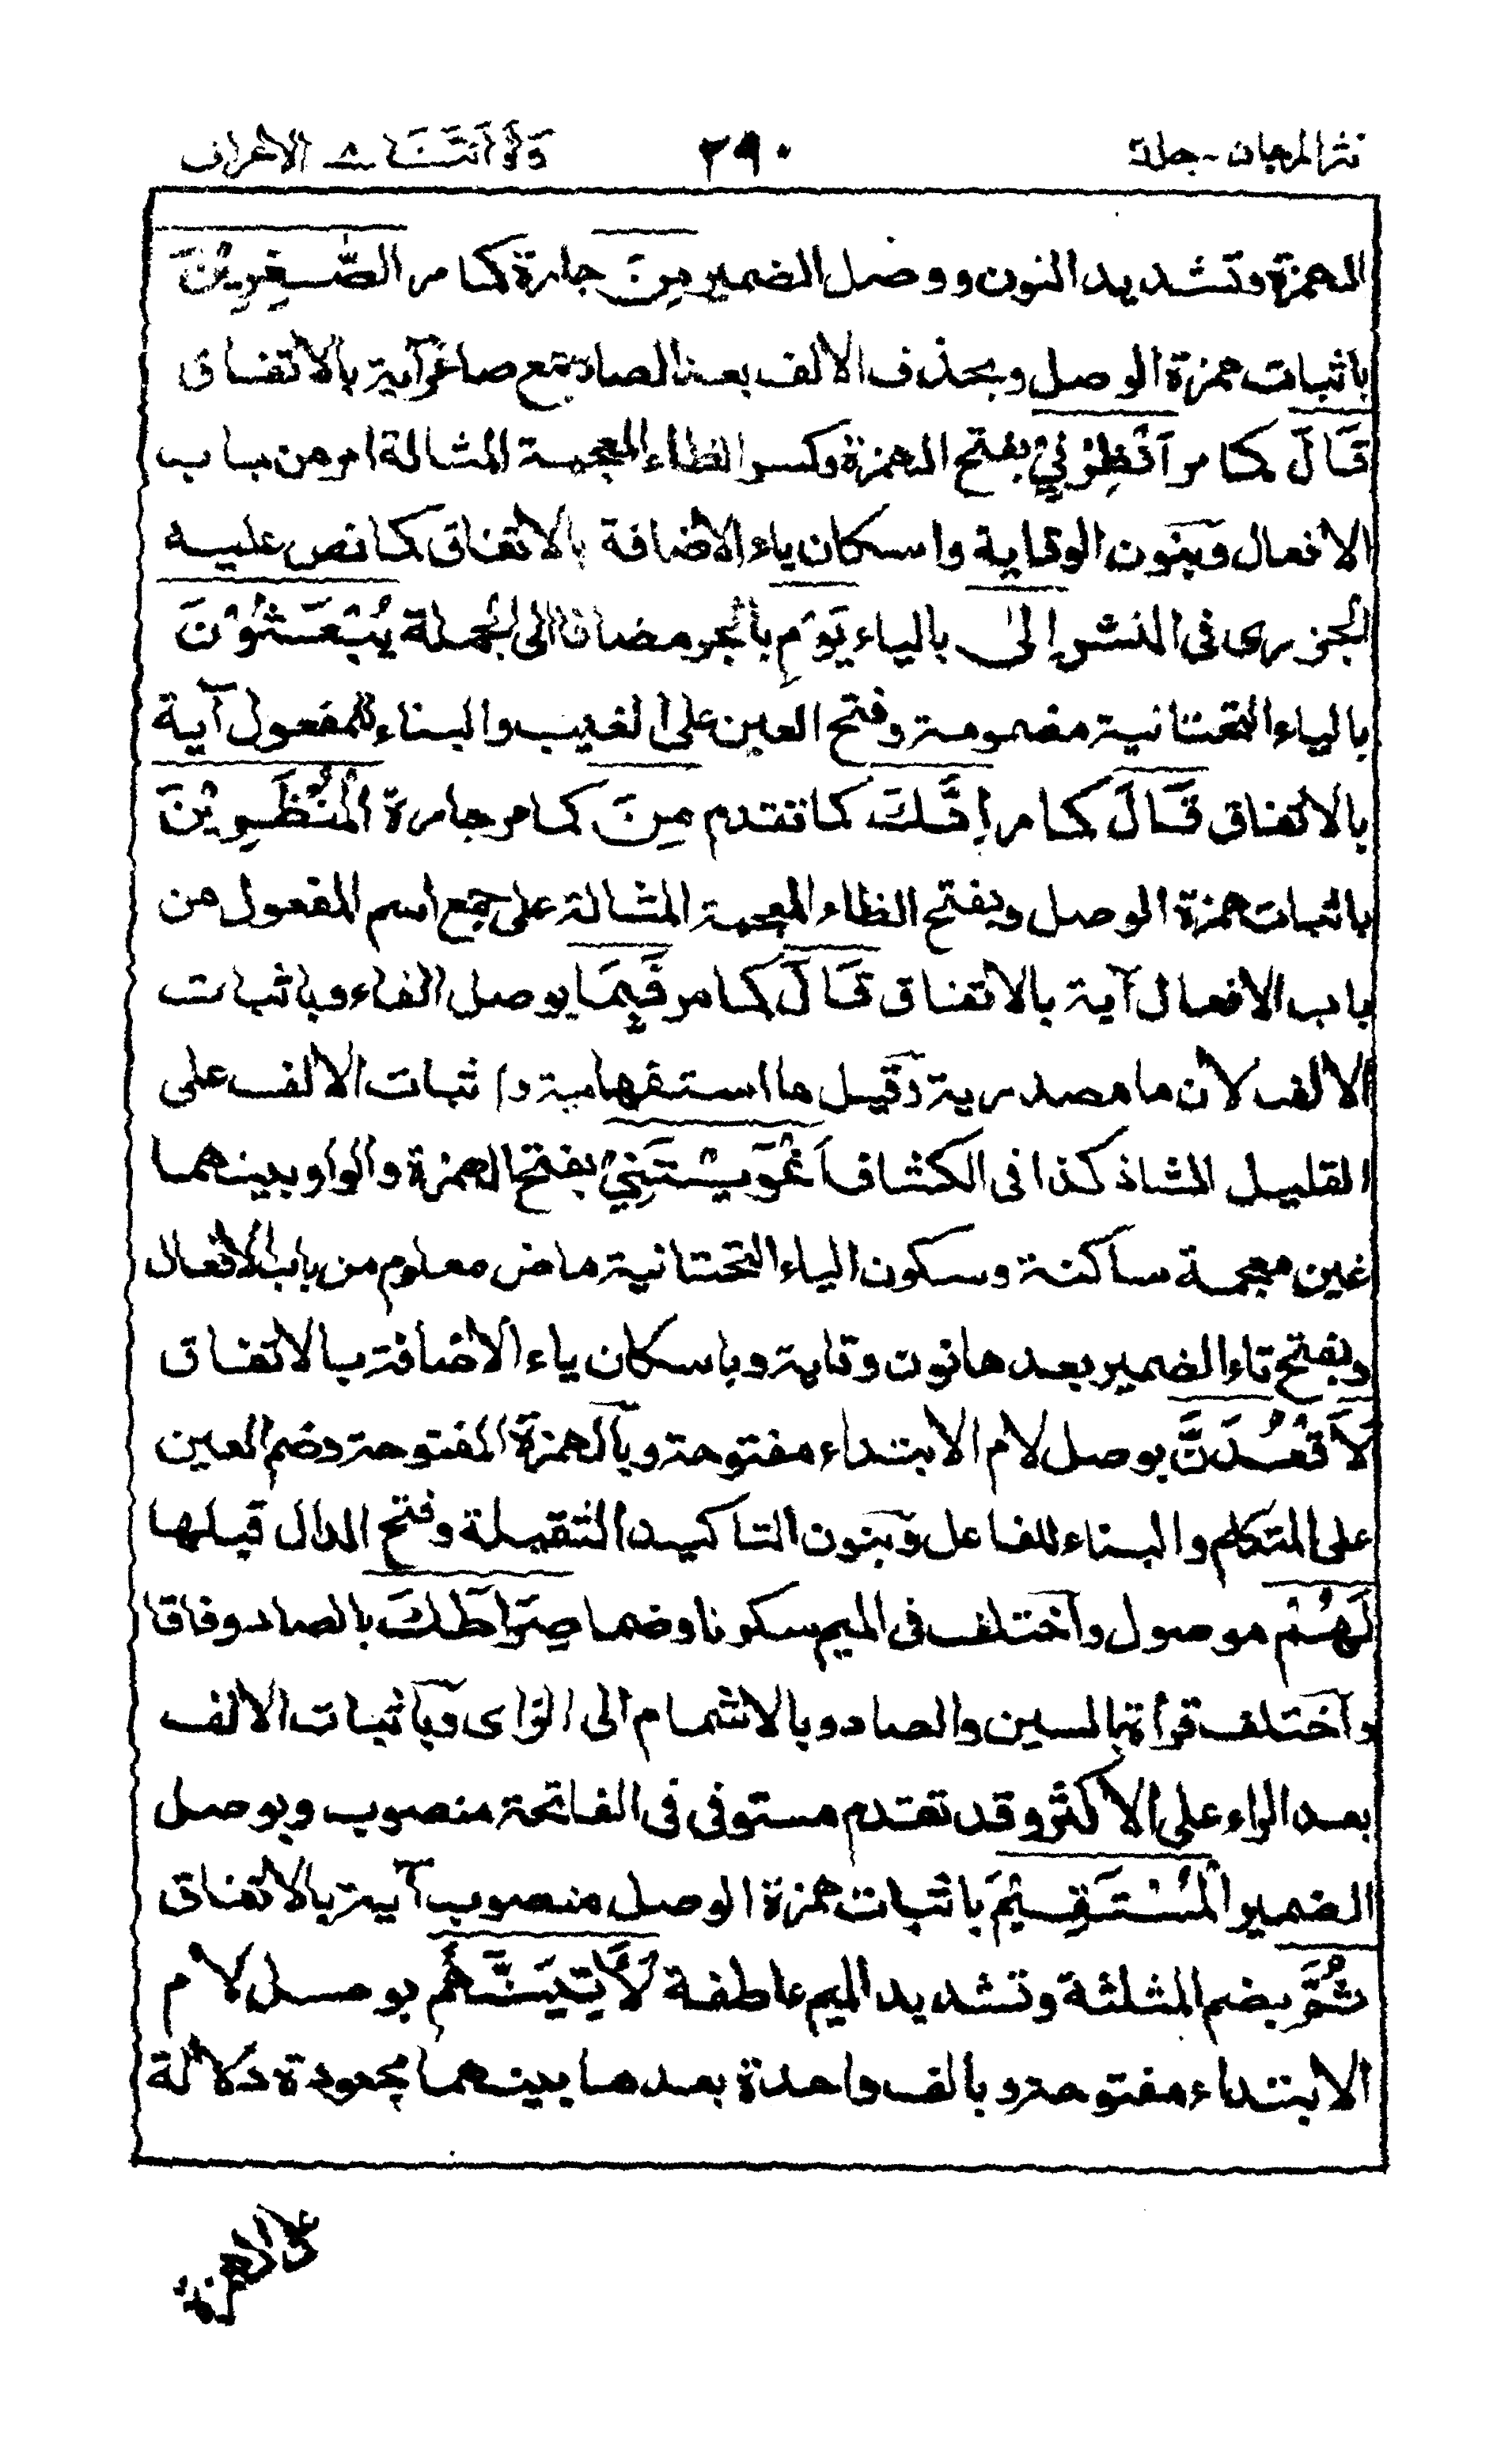 نثر المرجان - جلد ٢٩٠ ولو اننا ٨ الاعراف
الهمزة وتشديد النون ووصل الضمير مِنَ جارة كما مر الصّٰغِرِيْنَ
باثبات همزة الوصل وبحذف الالف بعد الصاد جمع صاغر آية بالاتفاق
قَالَ كما مر اَنْظِرْنِيْ بفتح الهمزة وكسر الظاء المعجمة المشالة امر من باب
الافعال وبنون الوقاية واسكان ياء الاضافة بالاتفاق كما نص عليه
الجزرى فى النشر اِلىٰ بالياء يَوْمِ بالجر مضافا الى الجملة يُبْعَثُوْنَ
بالياء التحتانية مضمومة وفتح العين على الغيب والبناء للمفعول آية
بالاتفاق قَالَ كما مر اِنَّكَ كما تقدم مِنَ كما مر جارة الْمُنْظَرِيْنَ
باثبات همزة الوصل وبفتح الظاء المعجمة المشالة على جمع اسم المفعول من
باب الافعال آية بالاتفاق قَالَ كما مر فَبِمَا بوصل الفاء وباثبات
الالف لان ما مصدرية وقيل ما استفهامية واثبات الالف على
القليل الشاذ كذا فى الكشاف اَغْوَيْتَنِيْ بفتح الهمزة والواو بينهما
غين معجمة ساكنة وسكون الياء التحتانية ماض معلوم من باب الافعال
وبفتح تاء الضمير بعدها نون وقاية وباسكان ياء الاضافة بالاتفاق
لَاَقْعُدَنَّ بوصل لام الابتداء مفتوحة وبالهمزة المفتوحة وضم العين
على المتكلم والبناء للفاعل وبنون التاكيد الثقيلة وفتح الدال قبلها
لَهُمْ موصول واختلف فى الميم سكونا وضما صِرَاطَكَ بالصاد وفاقا
واختلف قرأة بالسين والصاد وبالاشمام الى الزاى وباثبات الالف
بعد الراء على الاكثر وقد تقدم مستوفى فى الفاتحة منصوب وبوصل
الضمير الْمُسْتَقِيْمَ باثبات همزة الوصل منصوب آية بالاتفاق
ثُمَّ بضم المثلثة وتشديد الميم عاطفة لَاٰتِيَنَّهُمْ بوصل لام
الابتداء مفتوحة وبالف واحدة بعدها بينهما مجعودة دلالة
على الهمزة